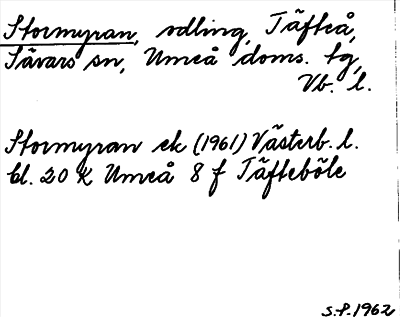 Stormyran, odling, Täfteå,
Sävars sn, Umeå doms. tg,
Vb. l.
Stormyran ek (1961) Västerb. l.
bl. 20 K Umeå 8 f Täfteböle
S.P. 1962